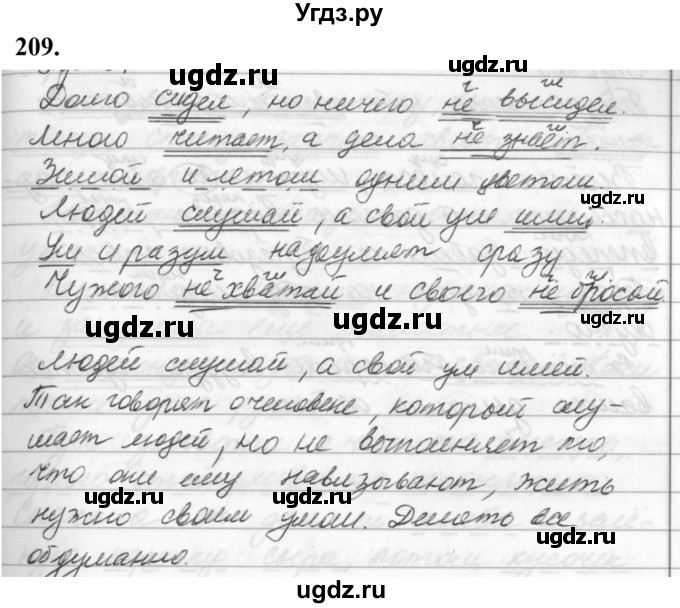 Угдз.ру
209.
Долго сидел, но ничего не высидел.
Много читает, а дела не знает.
Зимой и летом одним цветом.
Людей слушай, а свой ум имей.
Ум и разум надоумят сразу
Чужого не хватай и своего не бросай
Людей слушай, а свой ум имей.
Так говорят о человеке, который слу-
шает людей, но не выполняет то,
что они ему навязывают, жить
нужно своим умом. Делать все
обдуманно.
ugdz.ru ugdz.ru
ugdz.ru ugdz.ru
ugdz.ru ugdz.ru
ugdz.ru ugdz.ru
ugdz.ru ugdz.ru
ugdz.ru